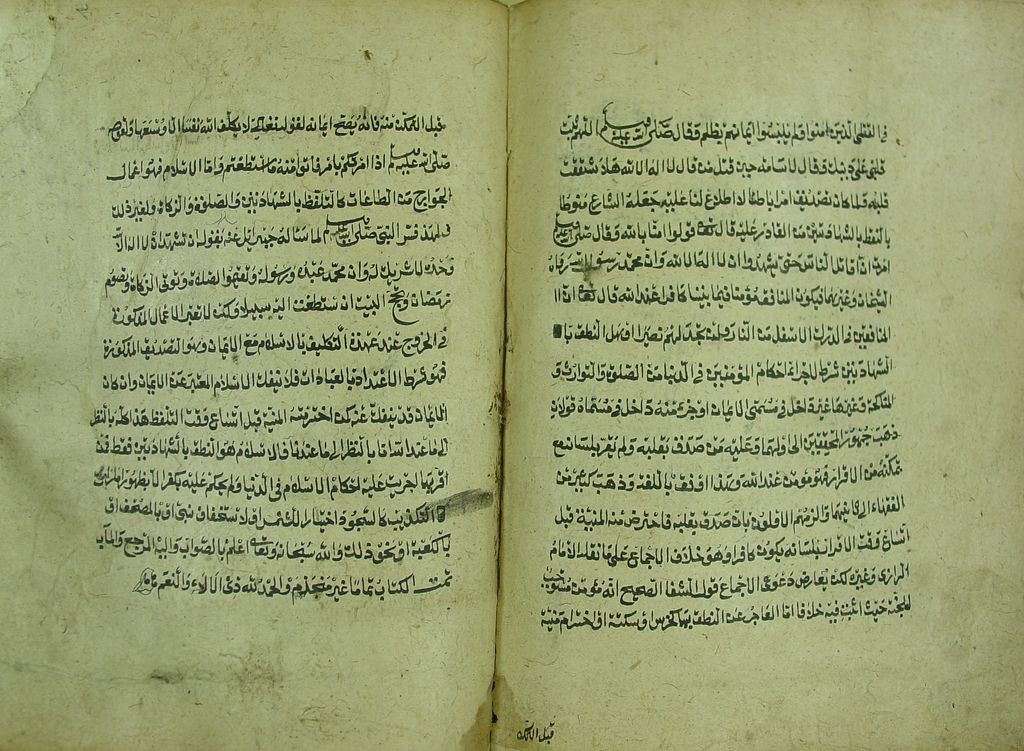 الذين امنوا ولم يلبسوا ايمانهم بظلم وقال صلى الله عليه وسلم اللهم ثبت
قلبي على دينك وقال لاسامة حين قتل من قال لا اله الا الله هلا شققت
قلبه فلما كان تصديق امرا باطنا لا اطلاع لنا عليه جعله الشارع منوطا
بالنطق بالشهادتين من القادر عليه قال تعالى قولوا امنا بالله وقال صلى الله عليه وسلم
امرت ان اقاتل الناس حتى يشهدوا ان لا اله الا الله وان محمد رسول الله رواه
الشيخان وغيرهما فيكون المنافق مؤمنا فيما بيننا كافرا عند الله قال تعالى ان
المنافقين في الدرك الاسفل من النار ولن تجد لهم نصيرا وهل النطق با
الشهادتين شرط لاجراء احكام المؤمنين في الدنيا من الصلوة والتوارث و
المناكحة وغيرها غير داخل في مسمى الايمان او جزء منه داخل في مسماه قولان
ذهب جمهور المحققين الى اولهما وعليه من صدق بقلبه ولم يقر بلسانه مع
تمكنه من الاقرار فهو مؤمن عند الله وهذا اوفق باللغة وذهب كثير من
الفقهاء الى ثانيهما والزمهم الاولون بان من صدق بقلبه فاخترمته المنية قبل
اتساع وقت الاقرار بلسانه يكون كافرا وهو خلاف الاجماع على ما نقله الامام
الرازي وغيره لكن يعارض دعوى الاجماع قول الشفا الصحيح انه مؤمن مستوجب
للجنة حيث اثبت فيه خلافا اما العاجز عن النطق بها كخرس او سكتة او اخترام منية
قبل التمكن
قبل التمكن منه فانه يصح ايمانه لقوله تعالى لا يكلف الله نفسا الا وسعها ولقوله
صلى الله عليه وسلم اذا امرتكم بامر فاتوا منه ما استطعتم واما الاسلام فهو اعمال
الجوارح من الطاعات كالتلفظ بالشهادتين والصلوة والزكاة ولغير ذلك
ولهذا فسر النبي صلى الله عليه وسلم لما ساله جبرائيل عنه بقوله ان تشهد ان لا اله الا الله
وحده لا شريك له وان محمد عبده ورسوله وتقيموا الصلاة وتؤتي الزكاة وتصوم
رمضان وتحج البيت ان استطعت اليه سبيلا ولكن لا تعتبر الاعمال المذكورة
في الخروج عن عهدة التكليف بالاسلام مع الايمان وهو التصديق المذكورة
فهو شرط الاعتداد بالعبادات فلا ينفك الاسلام المعتبر عن الايمان وان كان
الايمان قد ينفك عنه كمن اخترمته المنية قبل اتساع وقت التلفظ هذا كله بالنظر
الى ما عند الله اما بالنظر الى ما عندنا فالاسلام هو النطق بالشهادتين فقط فمن
اقر بهما اجريت عليه احكام الاسلام في الدنيا ولم يحكم عليه بكفر الا بظهور
التكذيب كالسجود اختيارا للشمس او لاستخفاف نبي او بالمصحف او
بالكعبة او نحو ذلك والله سبحانه وتعالى اعلم بالصواب واليه المرجع والمآب
تمت الكتاب تماما غير منخذم والحمد لله ذي الالاء والنعم